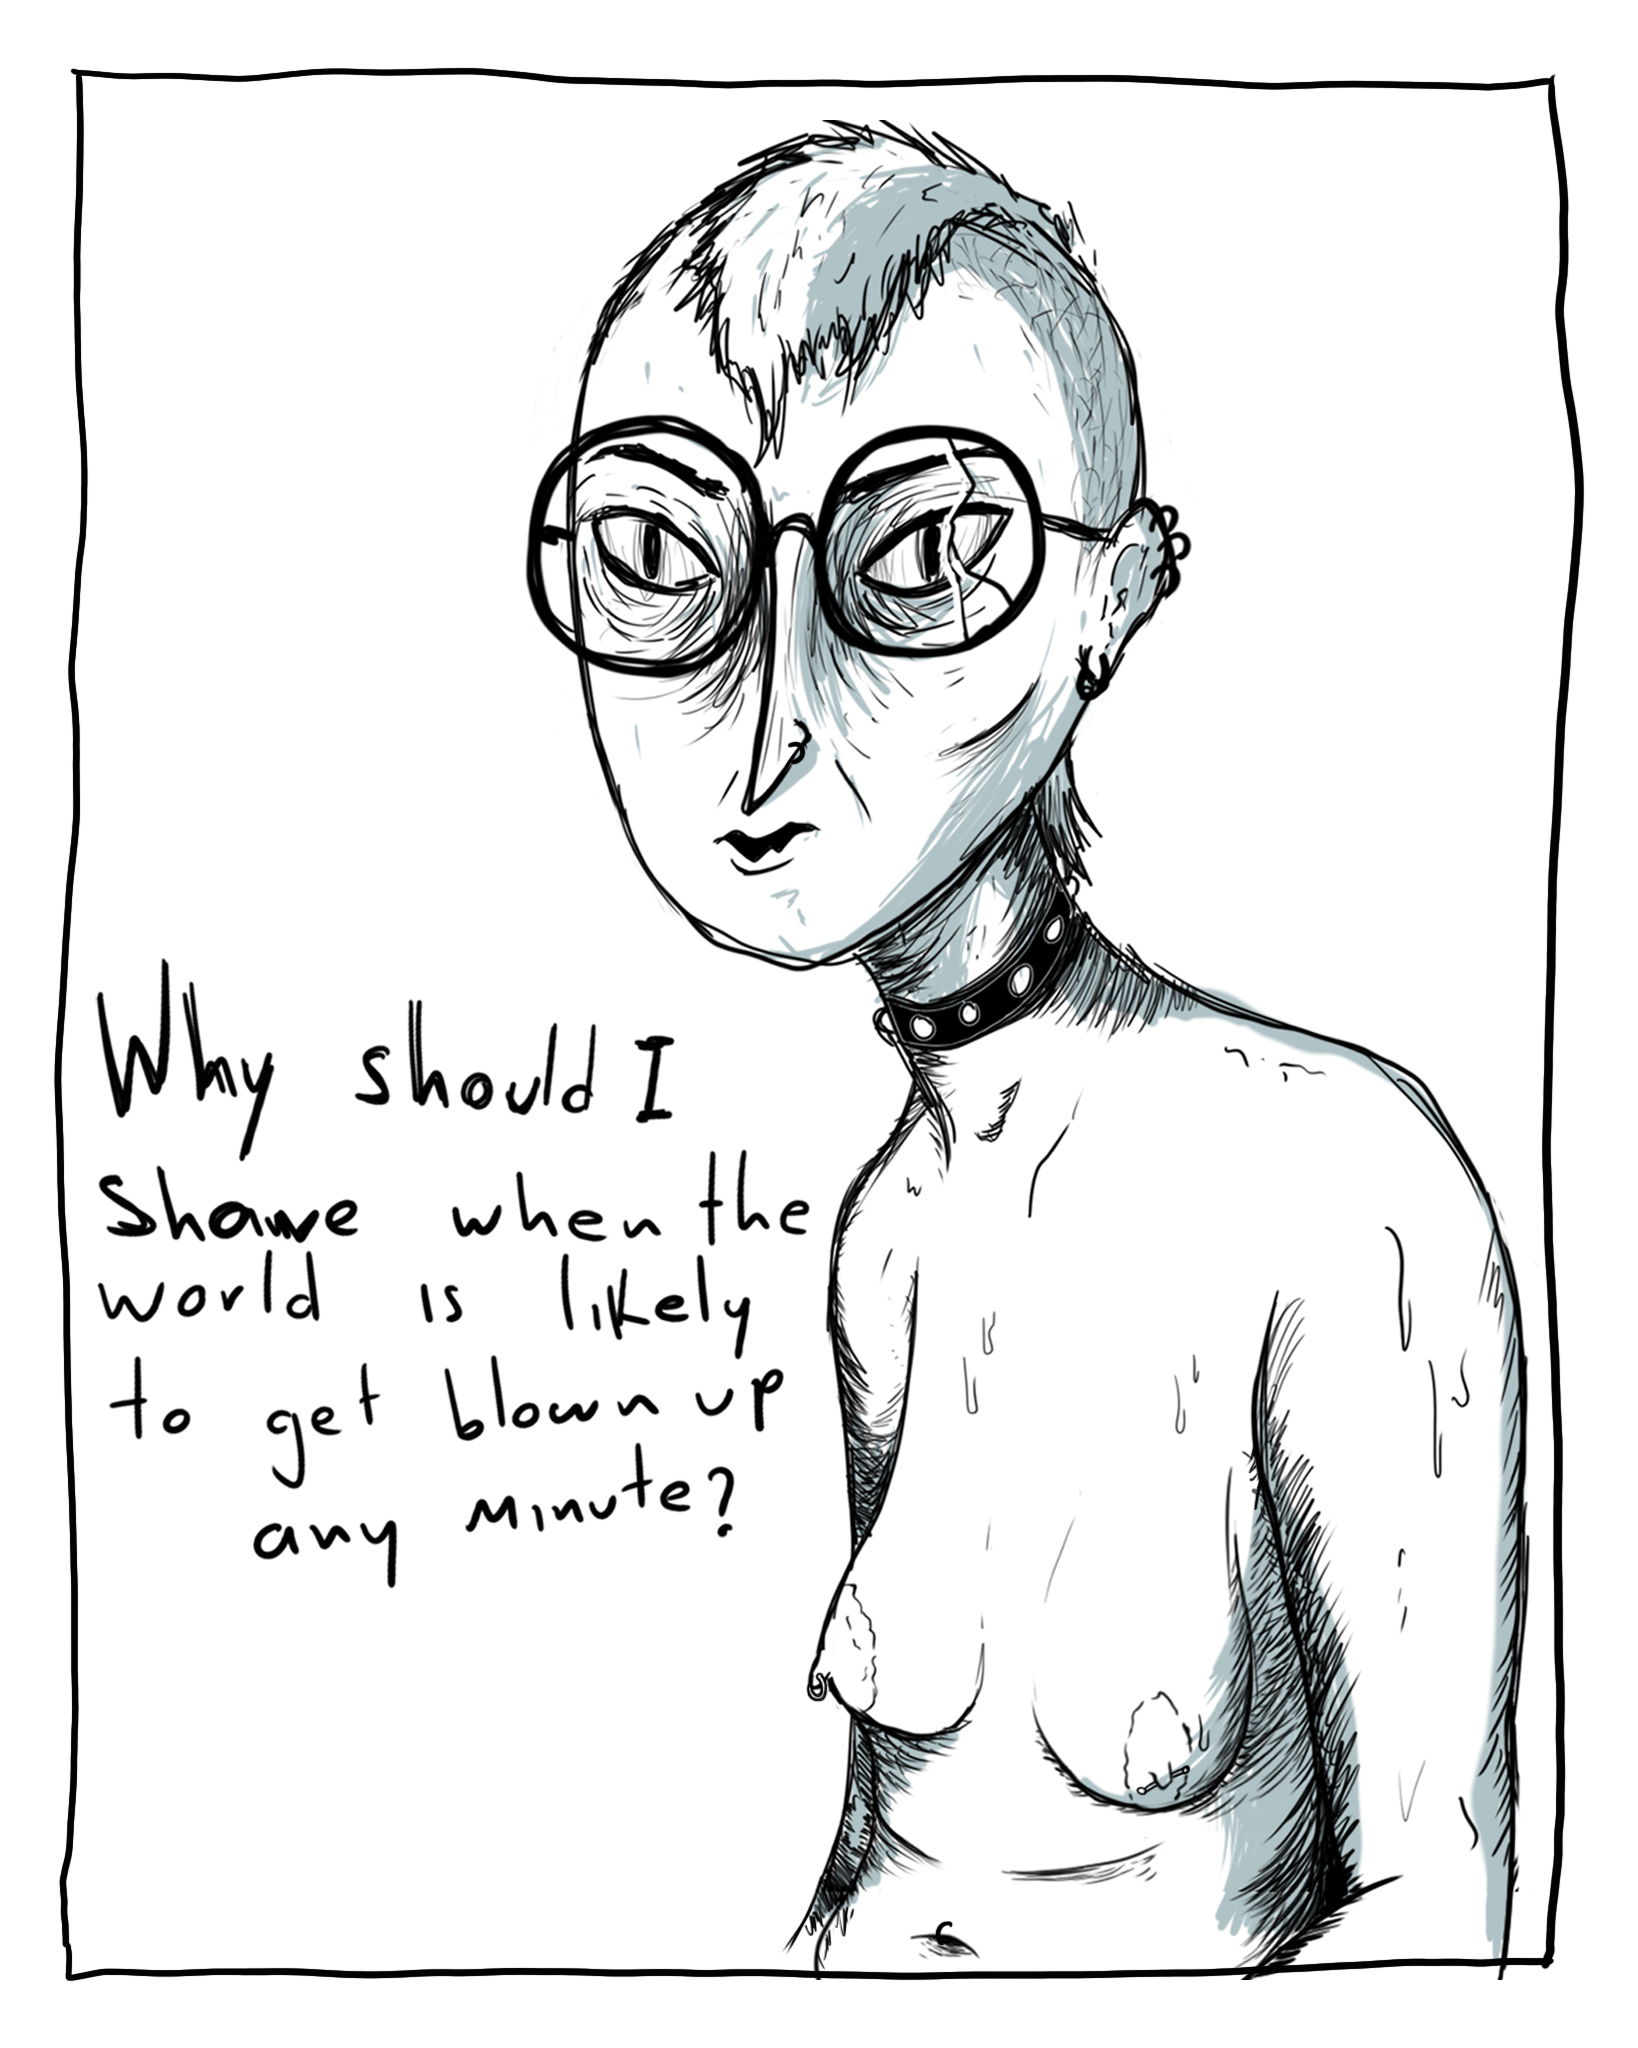 Why should I
Shave when the
world is likely
to get blown up
any minute?